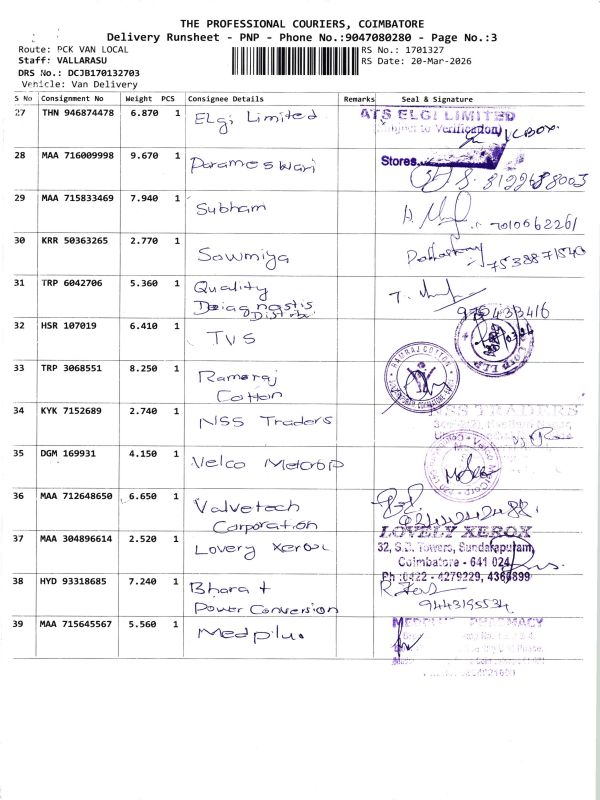 THE PROFESSIONAL COURIERS, COIMBATORE
Delivery Runsheet - PNP - Phone No.:9047080280 - Page No.:3
Route: PCK VAN LOCAL
RS No.: 1701327
Staff: VALLARASU
RS Date: 20-Mar-2026
DRS No.: DCJB170132703
Vehicle: Van Delivery
S No Consignment No Weight PCS Consignee Details Remarks Seal & Signature
27 THN 946874478 6.870 1 Elgi Limited ATS ELGI LIMITED
(Subject to Verification)
Stores
28 MAA 716009998 9.670 1 Parameswari
29 MAA 715833469 7.940 1 Subham 7010662261
30 KRR 50363265 2.770 1 Sowmiya
31 TRP 6042706 5.360 1 Quality
32 HSR 107019 6.410 1 TVS
33 TRP 3068551 8.250 1 Ramaraj
Cotton
RAMRAJ COTTON
34 KYK 7152689 2.740 1 NSS Traders NSS TRADERS
35 DGM 169931 4.150 1 Velco
36 MAA 712648650 6.650 1 Valvetech
Corporation
37 MAA 304896614 2.520 1 Lovery Xerox LOVELY XEROX
32, S.B. Towers, Sundarapuram,
Coimbatore - 641 024
Ph :0422 - 4279229, 4366899
38 HYD 93318685 7.240 1 Bharat
Power Conversion
39 MAA 715645567 5.560 1 Medplu. PHARMACY